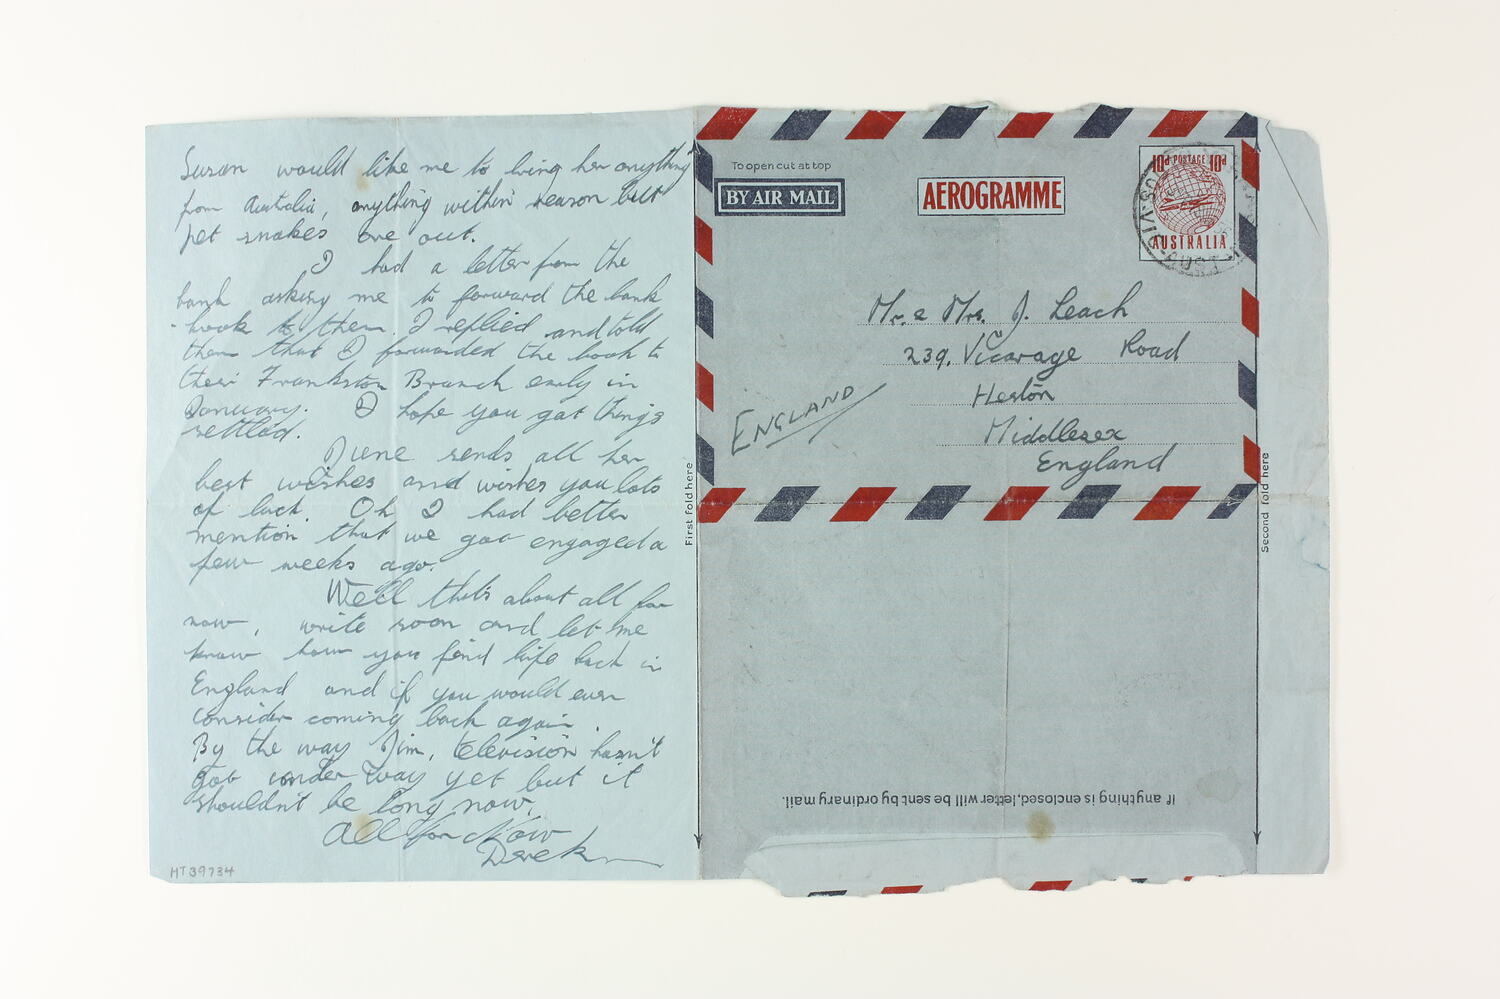 Susan would like me to bring her anything
from Australia, anything within reason but
pet snakes are out.
I had a letter from the
bank asking me to forward the bank
book to them. I replied and told
them that I forwarded the book to
their Frankston Branch early in
January. I hope you got things
settled.
June sends all her
best wishes and wishes you lots
of luck. Oh I had better
mention that we got engaged a
few weeks ago.
Well that's about all for
now, write soon and let me
know how you find life back in
England and if you would ever
consider coming back again.
By the way Jim, television hasn't
got under way yet but it
shouldn't be long now.
All For Now
Derek
HT39734
First fold here
To open cut at top
BY AIR MAIL
AEROGRAMME
10d POSTAGE 10d
AUSTRALIA
Mr. & Mrs. J. Leach
239, Vicarage Road
Heston
Middlesex
England
ENGLAND
Second fold here
If anything is enclosed, letter will be sent by ordinary mail.